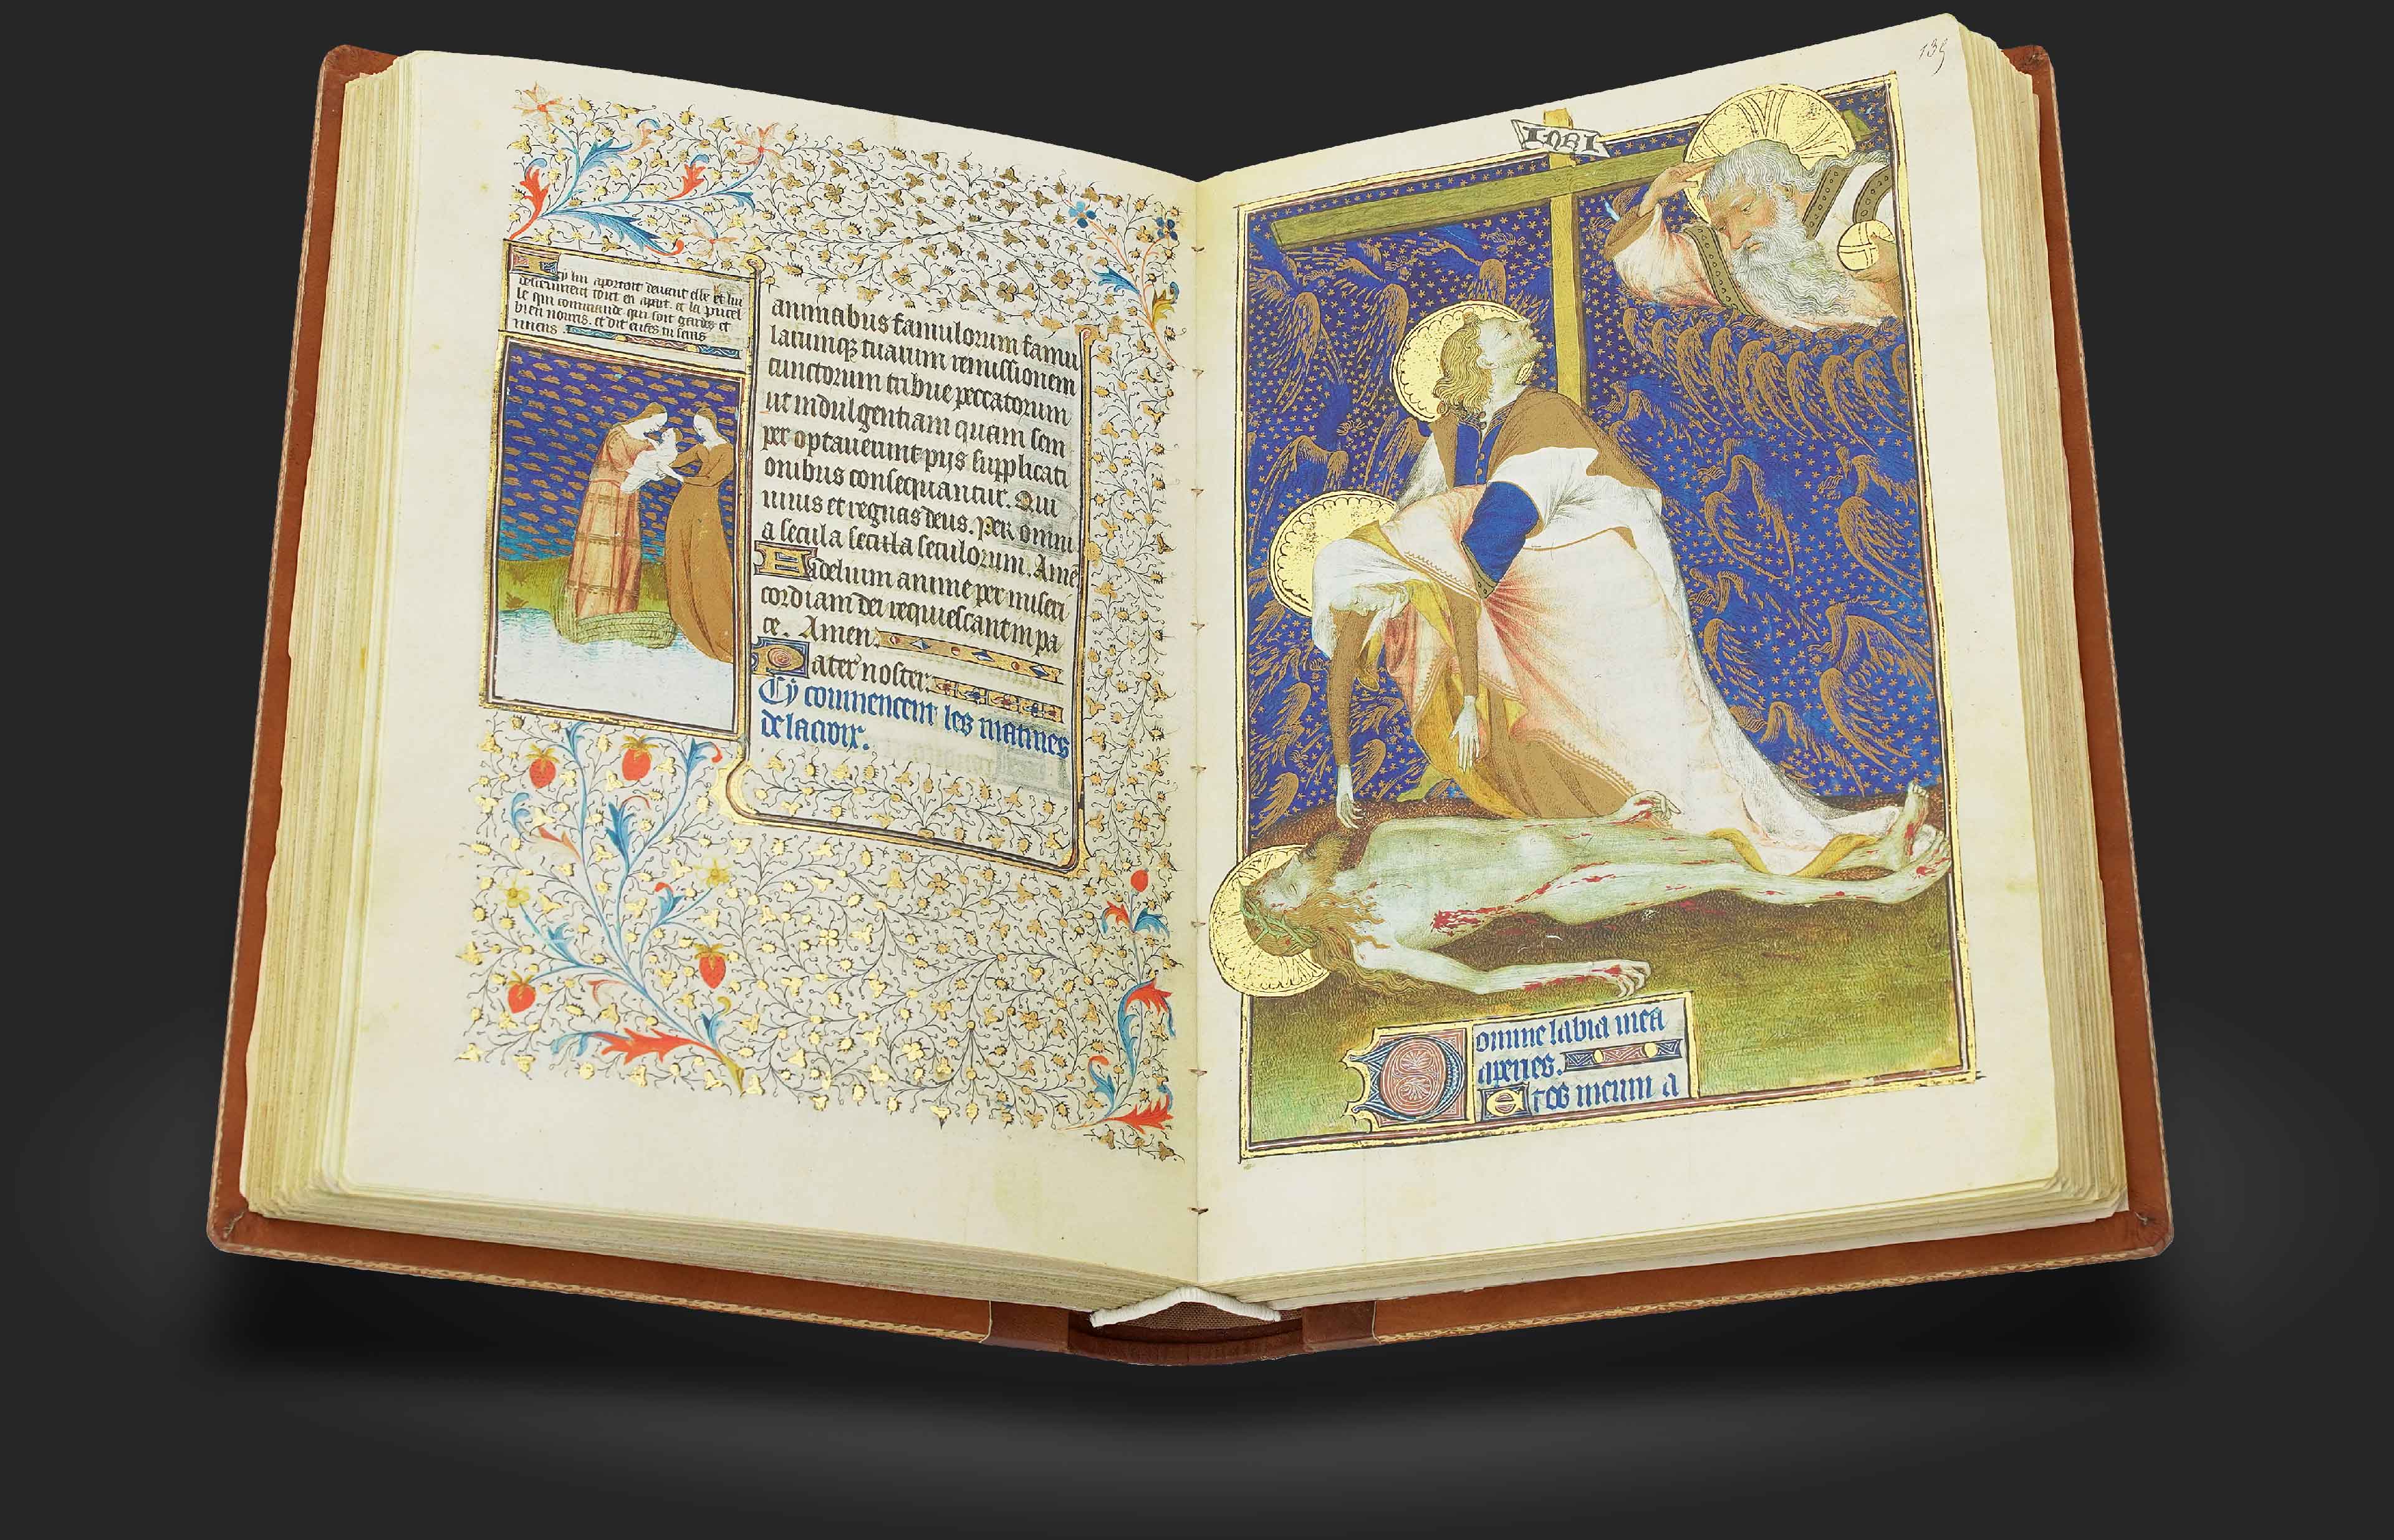 Cy lui aportent deuant elle et lui
descouurent tout en apart. et la pucel
le qui commande que soit gardes et
bien nouris. et dit
mens.
animabus famulorum famu
larumq; tuarum remissionem
cunctorum tribue peccatorum
ut indulgentiam quam sem
per optauerunt pijs supplicati
onibus consequantur. Qui
uiuis et regnas deus. Per omni
a secula seculā seculorum. Amē
Fidelium anime per miseri
cordiam dei requiescant in pa
ce. Amen.
Pater noster.
Cy commencent les matines
de la croix.
139
INRI
Domine labia mea
aperies.
Et os meum a